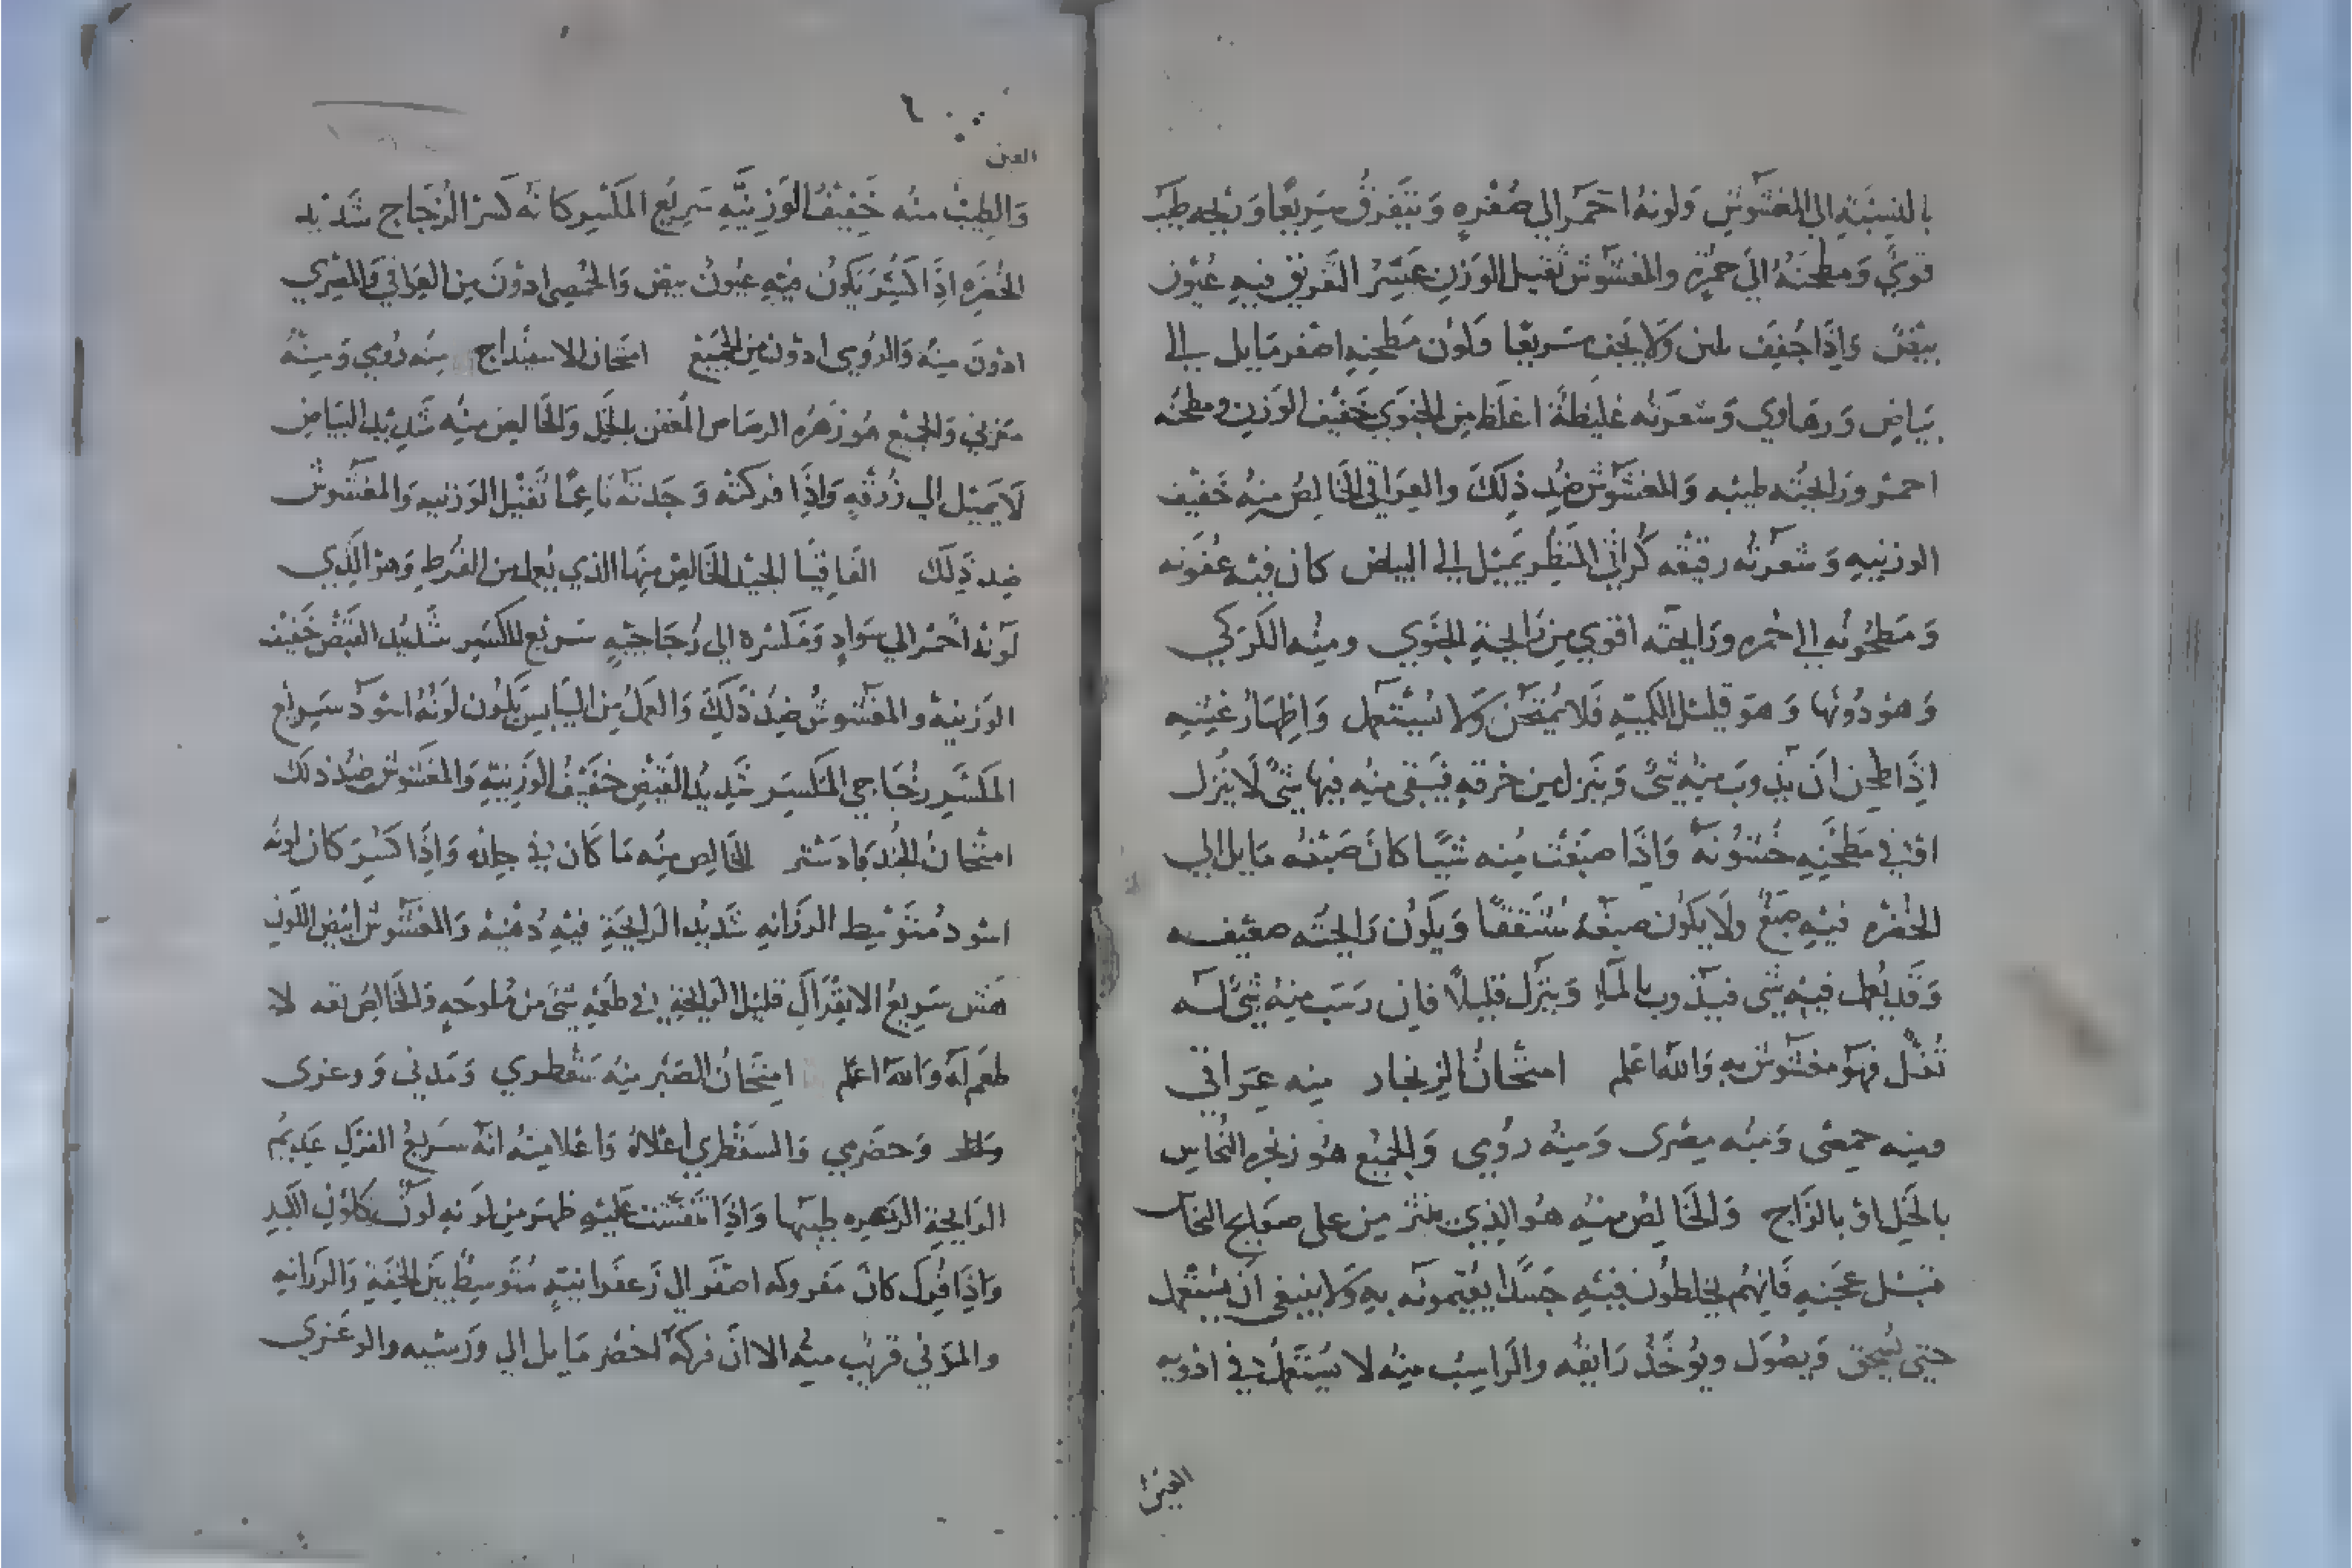 بالنسبته الي المغشوش ولونه احمر الي صفره ويتفرق سريعا وريحه طيب
قوي ومطحنه الي حمره والمغشوش ثقيل الوزن عسر التفريق فيه عيون
بيض واذا جفف يلين ولا يجف سريعا ولون مطحنه اصفر مايل الي
بياض ورهاوي وشعرته غليظة اغلظ من الجنوي خفيف الوزن ومطحنه
احمر ورايحته طيبه والمغشوش ضد ذلك والعراقي الخالص منه خفيف
الوزنيه وشعرته رقيقه كراثي المنظر يميل الي البياض كان فيه عفونه
ومطحونه الي حمره ورايحته اقوي من رايحة الجنوي ومنه الكركي
وهو دونها وهو قليل الكميه فلا يمتحن ولا يستعمل واظهار غشه
اذا طحن ان يذوب منه شئ وينزل من خرقه فيبقي منه فيها شئ لا ينزل
او في مطحنه خشونه واذا صبغت منه شيا كان صبغه مايل الي
الخفره فيه صبغ ولا يكون صبغه مشققا ويكون رايحته ضعيفه
وقد يعمل فيه شئ فيذوب بالماء وينزل قليلا فان رسب منه شئ له
ثفل فهو مغشوش به والله اعلم امتحان الزنجار منه عراقي
ومنه حمصي ومنه مصري ومنه رومي والجميع هو زنجره النحاس
بالخل او بالزاج والخالص منه هو الذي ينثر من علي صفايح النحاس
قبل عجنه فانهم يخلطون فيه جسدا يقيمونه به ولا ينبغي ان يستعمل
حتي يسحق ويصول ويوخذ رايقه والراسب منه لا يستعمل في ادويه
العين
٦
العين
والطيب منه خفيف الوزنيه سريع المكسر كانه كسر الزجاج شديد
الخفره اذا كسر يكون فيه عيون بيض والحمصي ادون من العراقي والمصري
ادون منه والرومي ادون من الجميع امتحان الاسفيداج منه رومي ومنه
مغربي والجميع هو زهره الرصاص المعفن بالخل والخالص منه شديد البياض
لا يميل الي زرقه واذا فركته وجدته ناعما ثقيل الوزنيه والمغشوش
ضد ذلك القاقيا الجيد الخالص منها الذي يعمل من القرط وهو الذي
لونه احمر الي سواد ومكسره الي زجاجيه سريع للكسر شديد القبض خفيف
الوزنيه والمغشوش ضد ذلك والعمل من اليابس يكون لونه اسود سريع
المكسر زجاجي المكسر شديد القبض خفيف الوزنيه والمغشوش ضد ذلك
امتحان الجندبادستر الخالص منه ما كان في جلده واذا كسر كان لونه
اسود متوسط الرزانه شديد الرايحة فيه دهنيه والمغشوش ابيض اللون
هش سريع الانفراك قليل الرايحة في طعمه شئ من ملوحه والخالص نقه لا
طعم له والله اعلم امتحان الصبر منه سقطري ومدني ووعري
وحضرمي والسقطري اعلاه واعلا منه انه سريع الفرك عديم
الرايحة الزهره طيبها واذا تنفست عليه ظهر من لونه لون كلون الكبد
واذا فرك كان مفروكه اصفر الي زعفرانيه متوسط بين الخفة والرزانه
والمدني قريب منه الا ان فركه اخضر مايل الي ورسيه والوعري